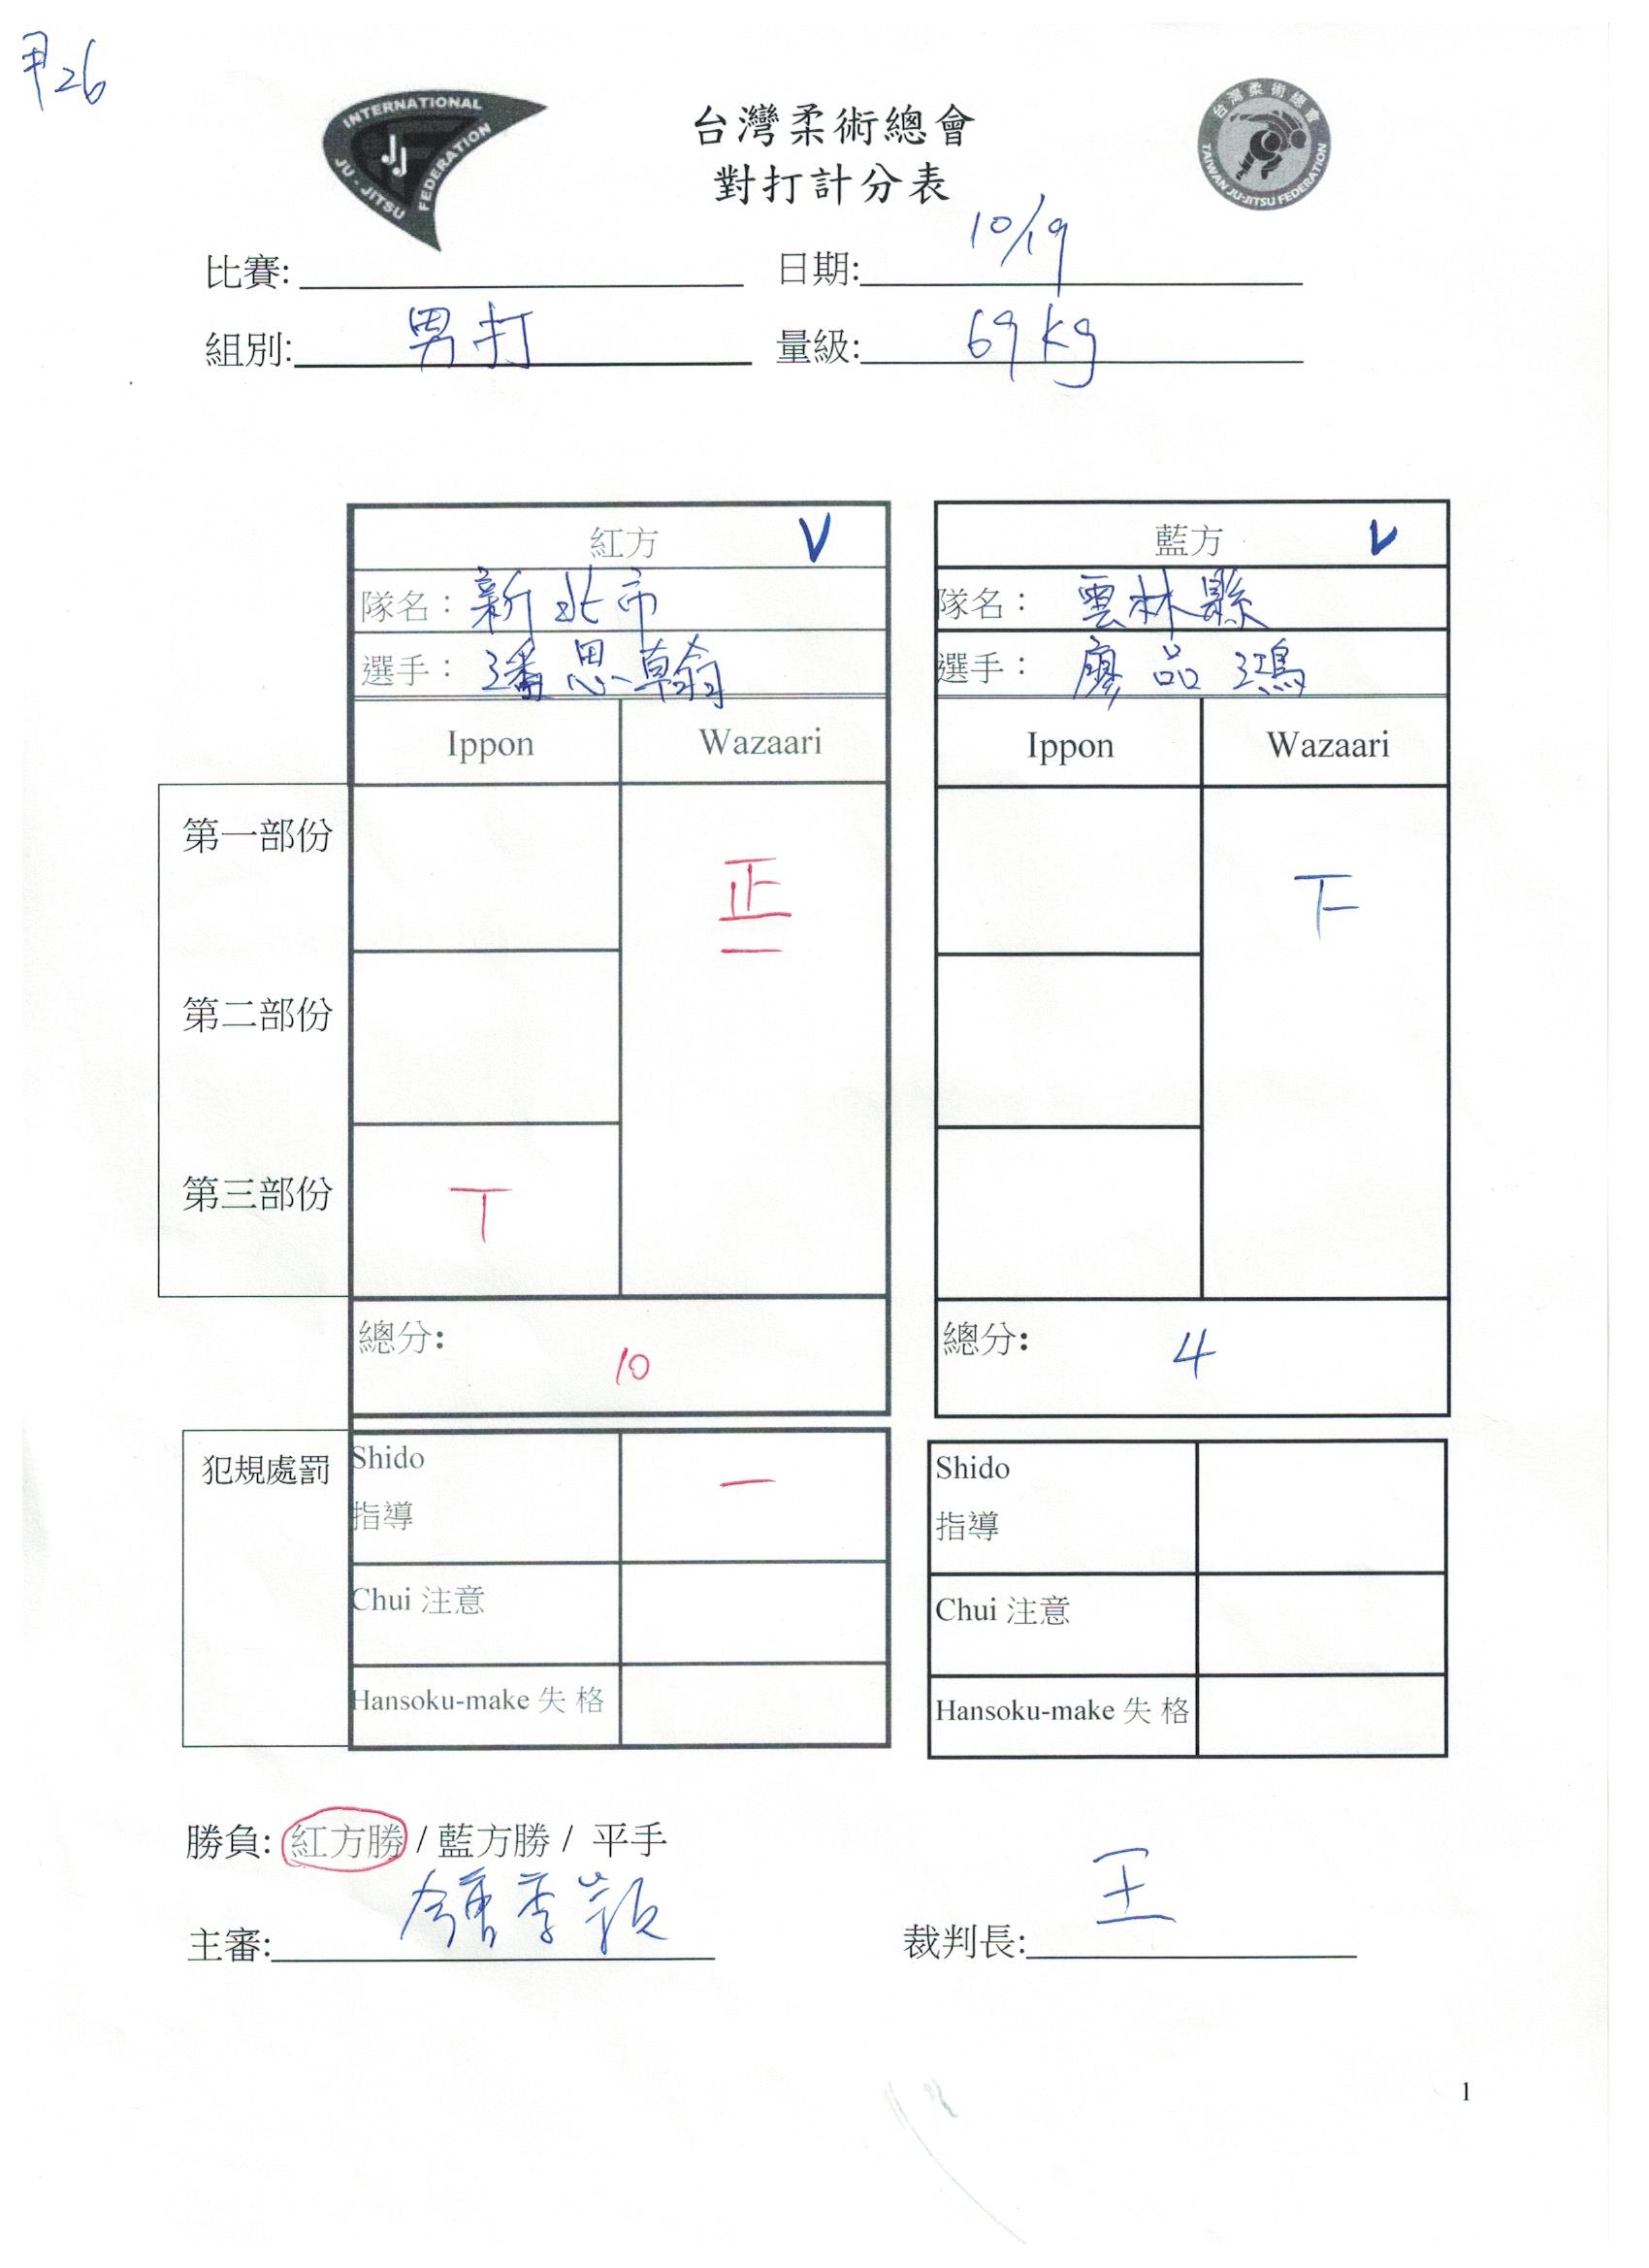 甲26
INTERNATIONAL JU-JITSU FEDERATION
JJ
台灣柔術總會
TAIWAN JU-JITSU FEDERATION
台灣柔術總會
對打計分表
比賽: 日期: 10/19
組別: 男打 量級: 69kg
紅方 V 藍方 V
隊名: 新北市 隊名: 雲林縣
選手: 潘思翰 選手: 廖品鴻
Ippon Wazaari Ippon Wazaari
第一部份 正一 下
第二部份
第三部份 丅
總分: 10 總分: 4
犯規處罰 Shido 一 Shido
指導 指導
Chui 注意 Chui 注意
Hansoku-make 失 格 Hansoku-make 失 格
勝負: 紅方勝 / 藍方勝 / 平手
主審: 鍾季穎 裁判長: 王
1